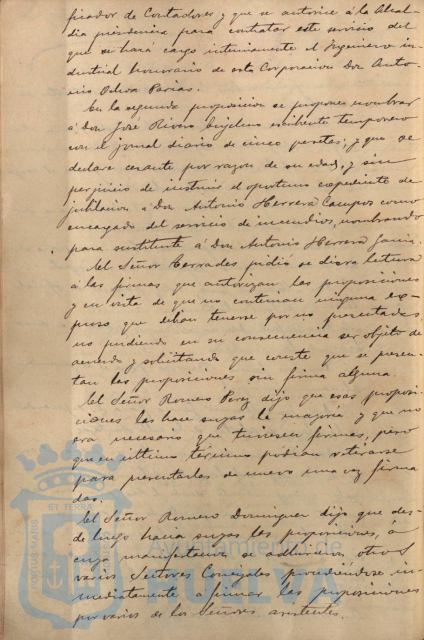 ficador de Contadores y que se autorice á la Alcal-
día presidencia para contratar este servicio del
que se hará cargo interinamente el Ingeniero in-
dustrial honorario de esta Corporacion Don Anto-
nio Oliva Parias.
En la segunda proposicion se propone nombrar
á Don José Rivero escribiente temporero
con el jornal diario de cinco pesetas, y que se
declare cesante por razon de su edad, y sin
perjuicio de instruir el oportuno expediente de
jubilacion á Don Antonio Herrera Campos como
encargado del servicio de incendios, nombrando
para sustituirle á Don Antonio Herrera Garcia.
El Señor Terrades pidió se diera lectura
á las firmas que autorizan las proposiciones
y en vista de que no contenian ninguna ex-
puso que debian tenerse por no presentadas
no pudiendo en su consecuencia ser objeto de
acuerdo y solicitando que conste que se presen-
tan las proposiciones sin firma alguna.
El Señor Romero Perez dijo que esas proposi-
ciones las hace suyas la mayoria y que no
era necesario que tuviesen firmas, pero
que en último término podian retirarse
para presentarlas de nuevo una vez firma
das.
El Señor Romero Dominguez dijo que des-
de luego hacia suyas las proposiciones, á
cuya manifestacion se adhirieron otros
varios Señores Concejales procediéndose in-
mediatamente á firmar las proposiciones
por varios de los Señores asistentes.
PORTUS MARIS
ET TERRÆ
Ayuntamiento de
HUELVA